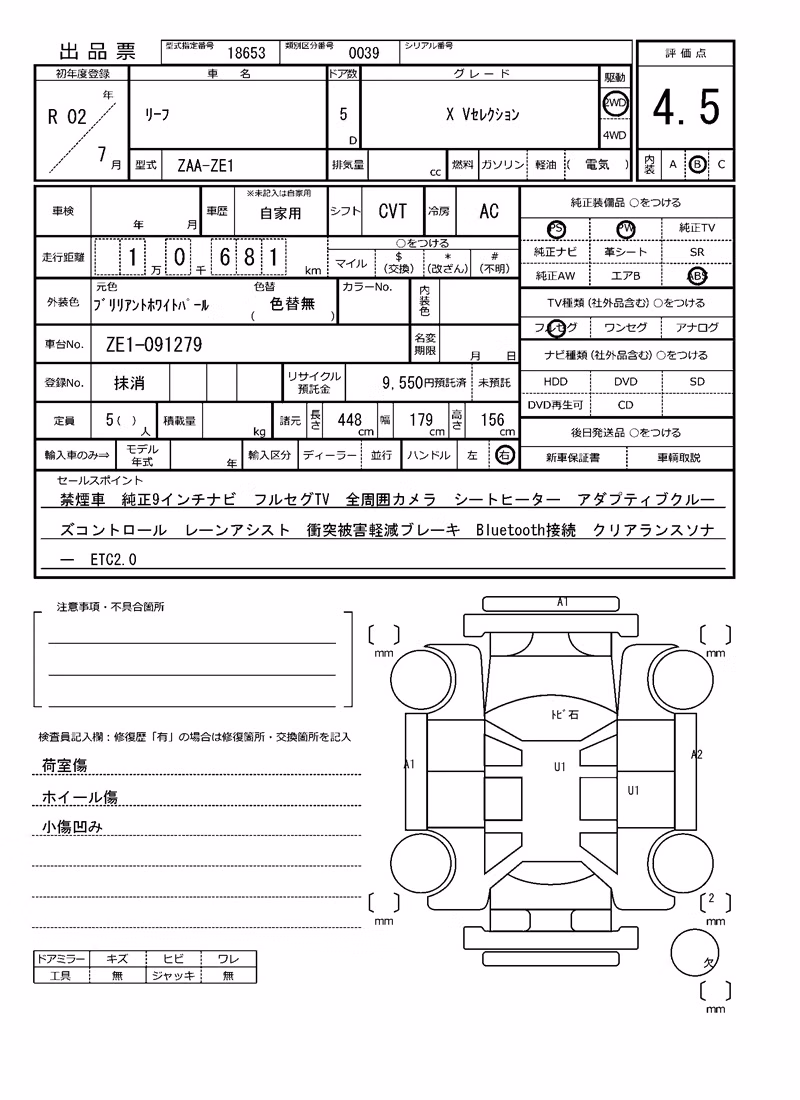 出品票
型式指定番号 18653 類別区分番号 0039 シリアル番号
評価点
4.5
内装 A B C
初年度登録 車名 ドア数 グレード 駆動
R 02 年 7 月
リーフ
5 D
X Vセレクション
2WD
4WD
型式 ZAA-ZE1 排気量 cc 燃料 ガソリン 軽油 ( 電気 )
車検 年 月 車歴 ※未記入は自家用 自家用 シフト CVT 冷房 AC
走行距離 1 万 0 千 6 8 1 km
○をつける
マイル $(交換) *(改ざん) #(不明)
外装色 元色 ブリリアントホワイトパール 色替 ( 色替無 ) カラーNo. 内装色
車台No. ZE1-091279 名変期限 月 日
登録No. 抹消 リサイクル預託金 9,550円預託済 未預託
定員 5( )人 積載量 kg 諸元 長さ 448cm 幅 179cm 高さ 156cm
輸入車のみ⇒ モデル年式 年 輸入区分 ディーラー 並行 ハンドル 左 右
純正装備品 ○をつける
PS PW 純正TV
純正ナビ 革シート SR
純正AW エアB ABS
TV種類(社外品含む)○をつける
フルセグ ワンセグ アナログ
ナビ種類(社外品含む)○をつける
HDD DVD SD
DVD再生可 CD
後日発送品 ○をつける
新車保証書 車輌取説
セールスポイント
禁煙車 純正9インチナビ フルセグTV 全周囲カメラ シートヒーター アダプティブクルー
ズコントロール レーンアシスト 衝突被害軽減ブレーキ Bluetooth接続 クリアランスソナ
ー ETC2.0
注意事項・不具合箇所
検査員記入欄：修復歴「有」の場合は修復箇所・交換箇所を記入
荷室傷
ホイール傷
小傷凹み
ドアミラー キズ ヒビ ワレ
工具 無 ジャッキ 無
A1
mm
mm
トビ石
A1
U1
A2
U1
mm
2
mm
欠
mm